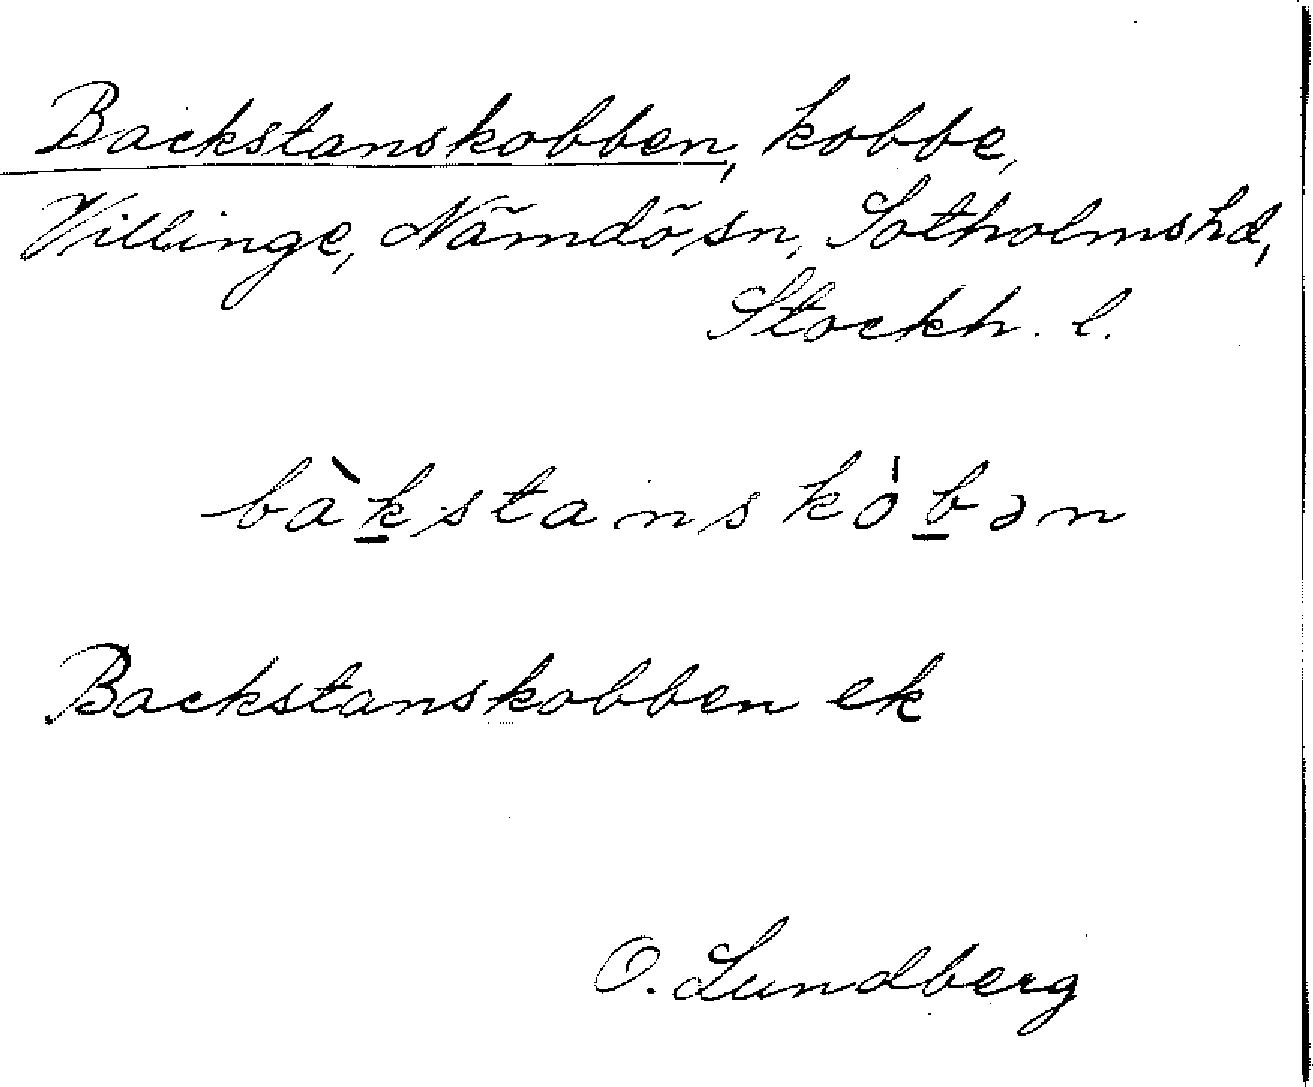 Backstanskobben, kobbe,
Villinge, Nämdö sn, Sotholms hd,
Stockh. l.
bàk̲stanskȯ́b̲ən
Backstanskobben ek
O. Lundberg